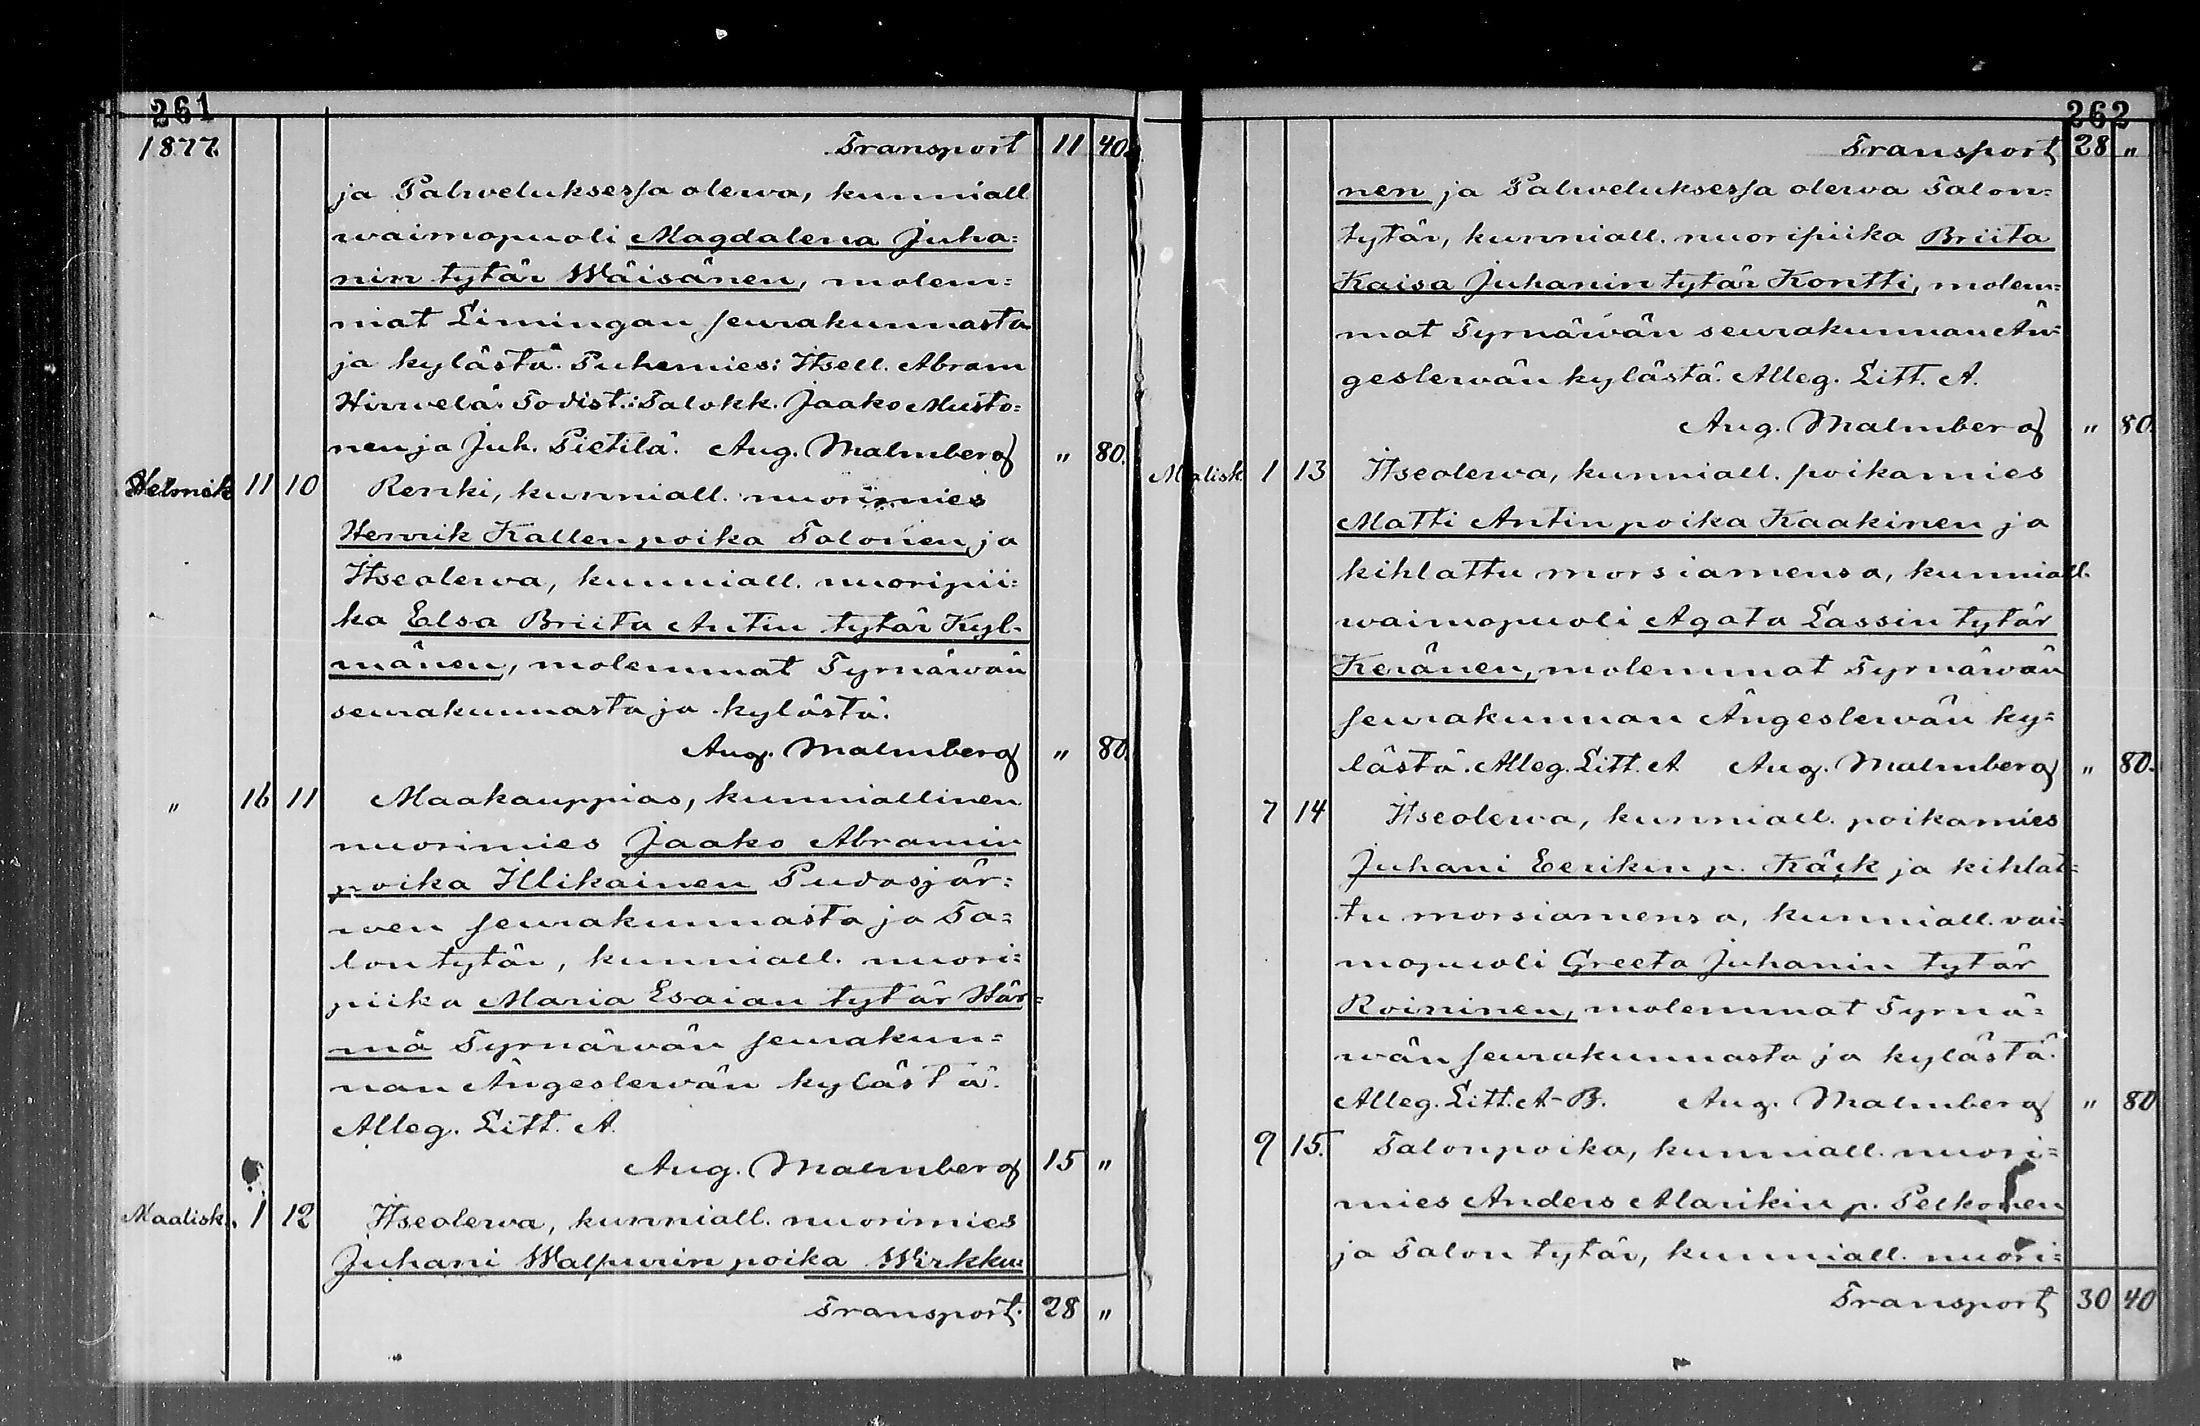 261
1877. Transport 11 40.
ja Palweluksessa olewa, kunniall.
waimopuoli Magdalena Juha=
nin tytär Wäisänen, molem=
mat Limingan seurakunnasta
ja kylästä. Puhemies: Itsell. Abram
Hirwelä. Todist.: Talokk. Jaako Musto=
nen ja Juh. Pietilä. Aug. Malmberg " 80.
Helmik 11 10 Renki, kunniall. nuorimies
Henrik Kallen poika Talonen ja
Itseolewa, kunniall. nuoripii=
ka Elsa Briita Antin tytär Kyl=
mänen, molemmat Tyrnäwän
seurakunnasta ja kylästä.
Aug. Malmberg " 80.
" 16 11 Maakauppias, kunniallinen
nuorimies Jaako Abramin
poika Illikainen Pudasjär=
wen seurakunnasta ja Ta=
lon tytär, kunniall. nuori=
piika Maria Esaian tytär Här=
mä Tyrnäwän seurakun=
nan Ängeslewän kylästä.
Alleg. Litt. A.
Aug. Malmberg 15 "
Maalisk. 1 12 Itseolewa, kunniall. nuorimies
Juhani Walpurin poika Wirkku
Transport. 28 "
262
Transport 28 "
nen ja Palweluksessa olewa Talon=
tytär, kunniall. nuoripiika Briita
Kaisa Juhanin tytär Kontti, molem=
mat Tyrnäwän seurakunnan Än=
geslewän kylästä. Alleg. Litt. A.
Aug. Malmberg " 80.
Malisk 1 13 Itseolewa, kunniall. poikamies
Matti Antin poika Kaakinen ja
kihlattu morsiamensa, kunniall.
waimopuoli Agata Lassin tytär
Keränen, molemmat Tyrnäwän
seurakunnan Ängeslewän ky=
lästä. Alleg. Litt. A Aug. Malmberg " 80.
7 14 Itseolewa, kunniall. poikamies
Juhani Eerikin p. Käck ja kihlat=
tu morsiamensa, kunniall. vai=
mopuoli Greeta Juhanin tytär
Roininen, molemmat Tyrnä=
wän seurakunnasta ja kylästä.
Alleg. Litt. A-B. Aug. Malmberg " 80
9 15. Talonpoika, kunniall. nuori=
mies Anders Alarikin p. Pelkonen
ja Talon tytär, kunniall. nuori=
Transport 30 40